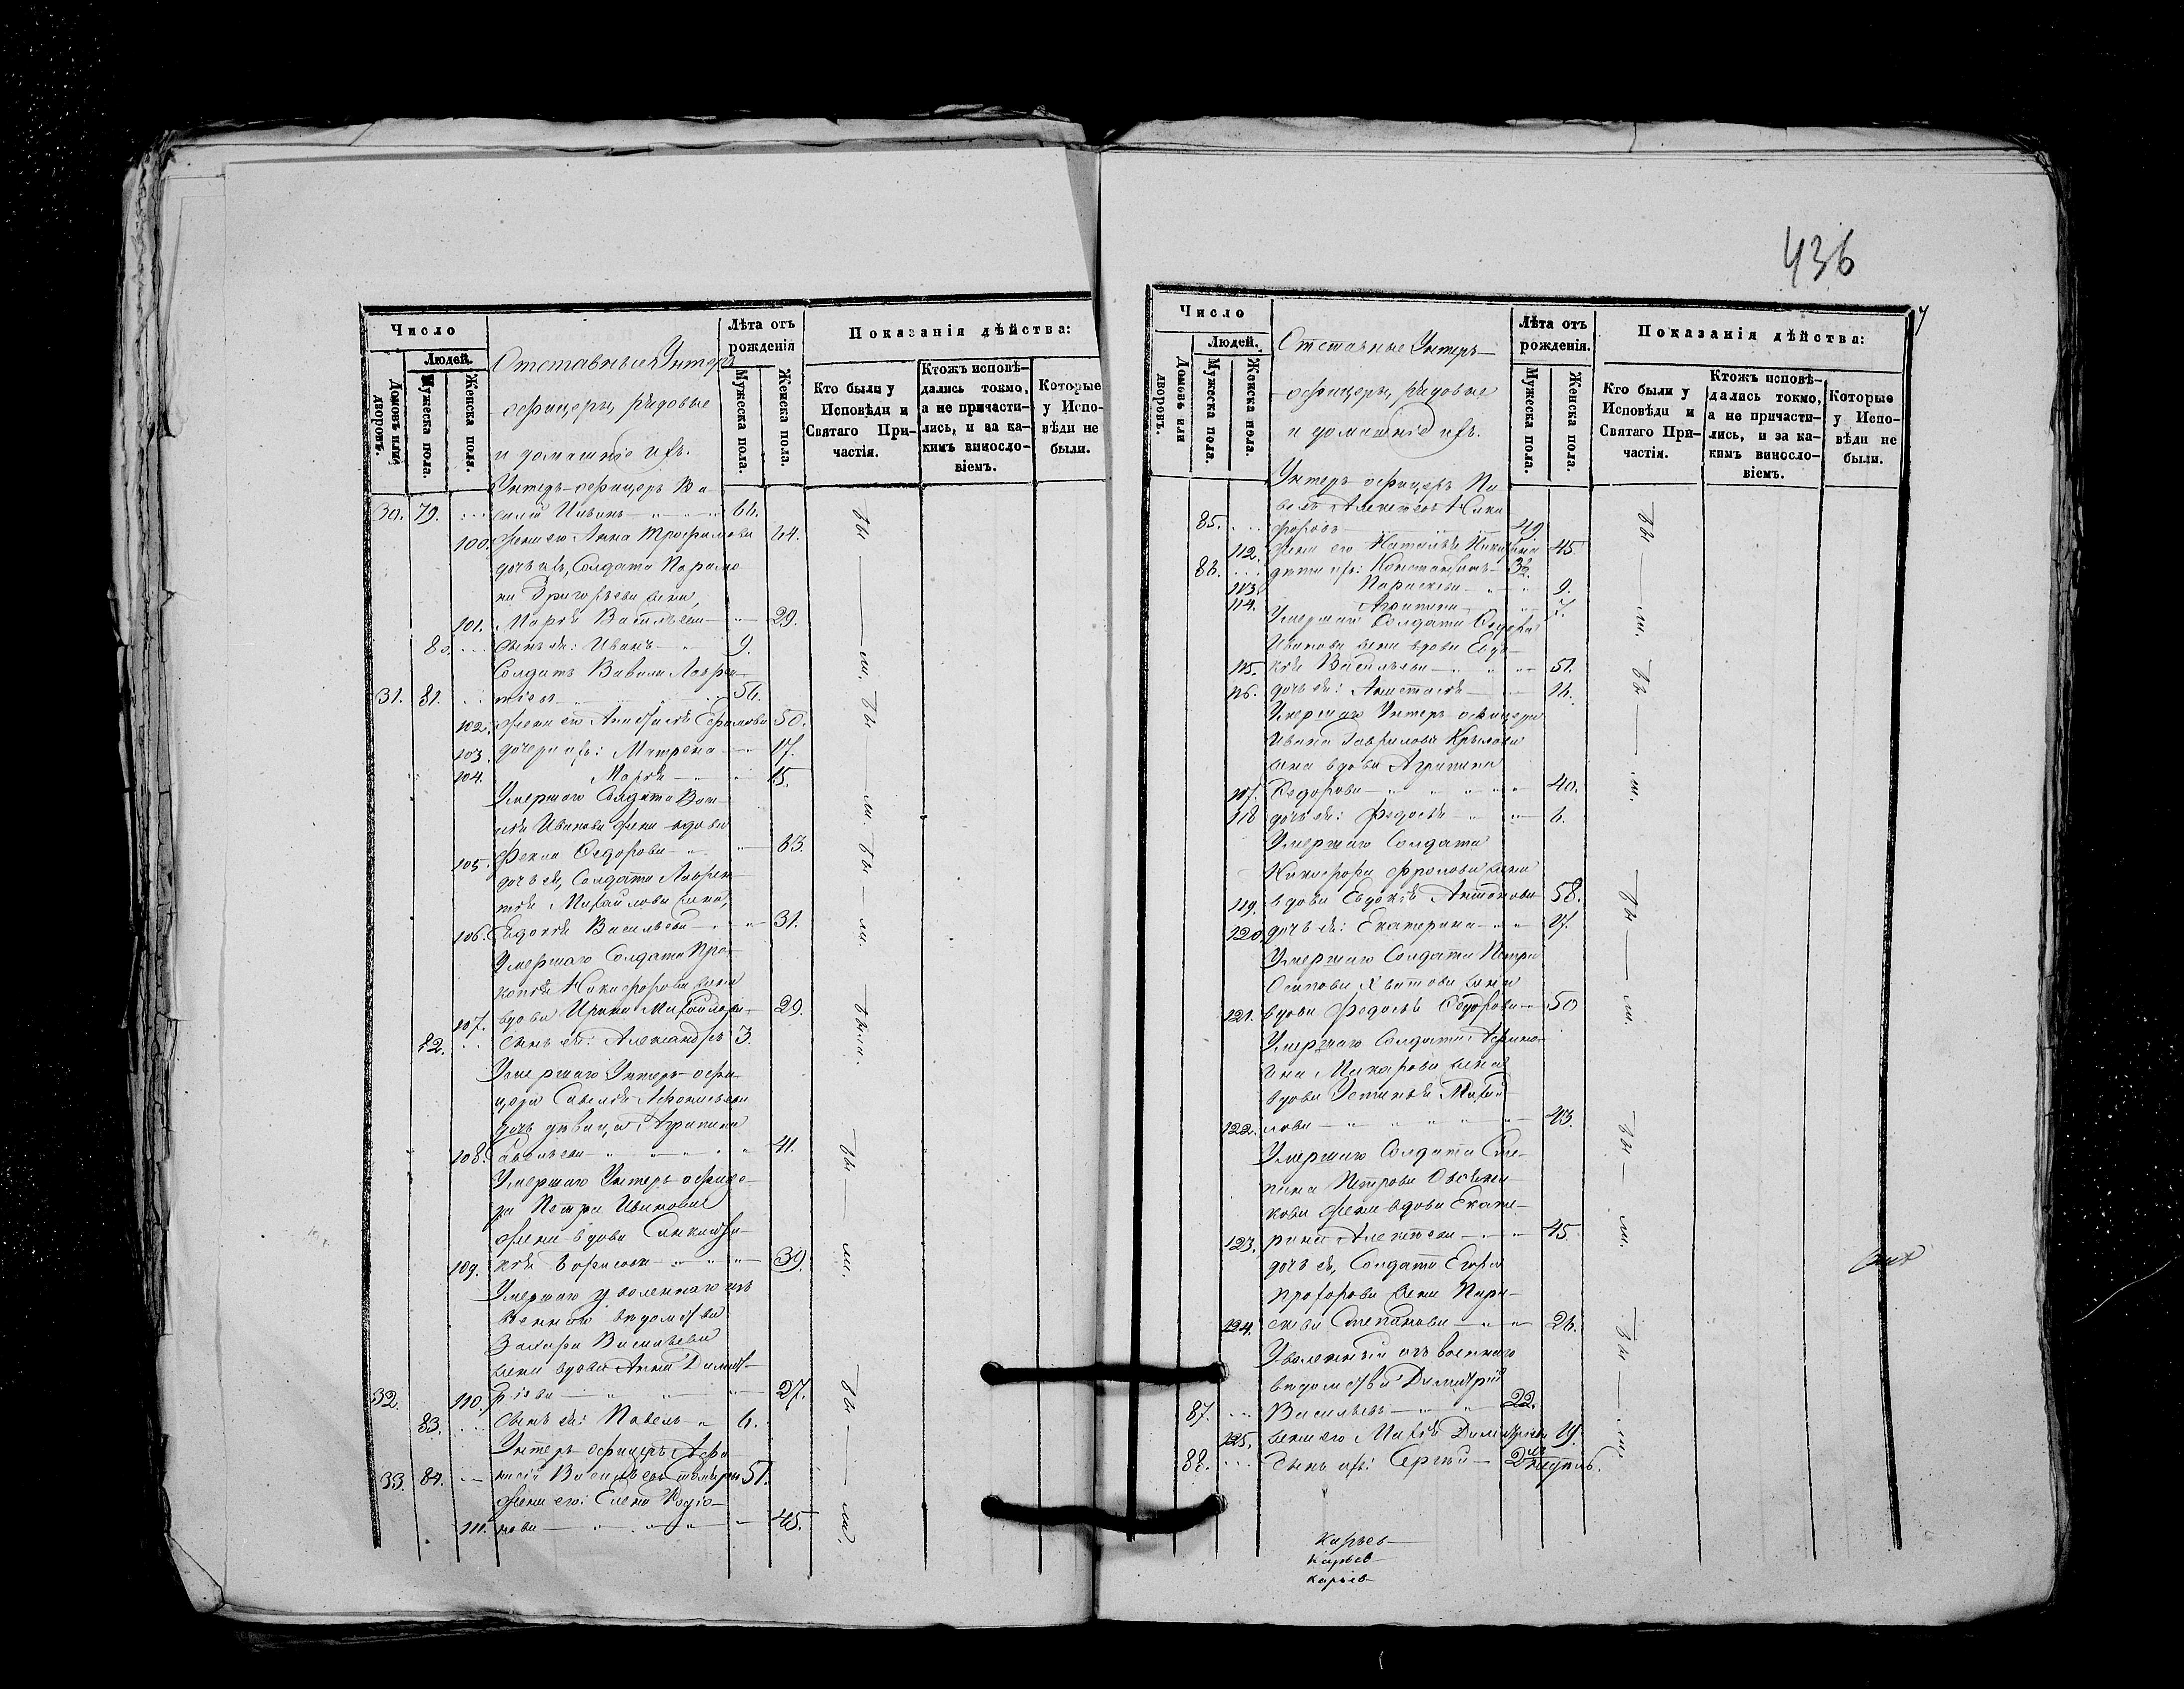 436
7
Число
Людей.
Домовъ или дворовъ.
Мужеска пола.
Женска пола.
Отставные Унтеръ
офицеры, рядовые
и домашніе ихъ.
Лѣта отъ рожденія
Мужеска пола.
Женска пола.
Показанія дѣйства:
Кто были у Исповѣди и Святаго Причастія.
Ктожъ исповѣдались токмо, а не причастились, и за какимъ винословіемъ.
Которые у Исповѣди не были.
Унтеръ-офицеръ Ва
30. 79. силій Ивановъ
100. жена его Анна Трофимова 64.
дочь ихъ, Солдата Парамо
на Григорьева жена,
101. Марія Васильева 29.
80. сынъ ея: Иванъ 9.
Солдатъ Вавила Лаврен
31. 81. тіевъ 56.
102. жена его Анастасія Ефимова 50.
103. дочери ихъ: Матрена 17.
104. Марія 15.
Умершаго Солдата
Иванова жена вдова
105. Фекла Ѳедорова 63.
дочь ея, Солдата Лаврен
тія Михайлова жена,
106. Евдокія Васильева 31.
Умершаго Солдата Про
копія Никифорова жена
107. вдова Ирина Михайлова 29.
82. сынъ ея: Александръ 3.
Умершаго Унтеръ-офи
цера Савелія Афонасьева
дочь дѣвица Агрипина
108. Савельева 41.
Умершаго Унтеръ-офице
ра Петра Иванова
жена вдова
109. Борисова 39.
Умершаго уволеннаго изъ
военнаго вѣдомства
Захара Васильева
жена вдова Анна Димит
32. 110. ріева 27.
83. сынъ ея: Павелъ 6.
Унтеръ офицеръ Афа
33. 84. насій Васильевъ 51.
жена его: Елена Родіо
111. нова 45.
Число
Людей.
Домовъ или дворовъ.
Мужеска пола.
Женска пола.
Отставные Унтеръ
офицеры, рядовые
и домашніе ихъ.
Лѣта отъ рожденія.
Мужеска пола.
Женска пола.
Показанія дѣйства:
Кто были у Исповѣди и Святаго Причастія.
Ктожъ исповѣдались токмо, а не причастились, и за какимъ винословіемъ.
Которые у Исповѣди не были.
Унтеръ офицеръ Па
велъ Алексѣевъ Ники
85. форовъ 49.
112. жена его Наталья 45
86. дѣти ихъ: Константинъ
113. Параскева 9.
114. Агрипина 7.
Умершаго Солдата Ѳедора
Иванова жена вдова Евдо
115. кія Васильева 51.
116. дочь ея: Анастасія 16.
Умершаго Унтеръ-офицера
Ивана Гаврилова Крылова
жена вдова Агрипина
117. Ѳедорова 40.
118 дочь ея: Федосья 6.
Умершаго Солдата
Никифора Фролова жена
119. вдова Евдокія Антонова 58.
120. дочь ея: Екатерина 17.
Умершаго Солдата Петра
Осипова Хватова жена
121. вдова Федосья Ѳедорова 50
Умершаго Солдата
Макарова жена
вдова Устинья Михай
122. лова 43.
Умершаго Солдата Сте
пана Петрова Овсянни
кова жена вдова Екате
123. рина Алексѣева 45
дочь ея, Солдата Егора
Прохорова жена Пара
124. скева Степанова 26.
Уволенный изъ военнаго
вѣдомства Димитрій
87. Васильевъ 22.
125. жена его Марія Димитріева 19.
88. сынъ ихъ: Сергѣй
Карьев
Карьев
Карьев